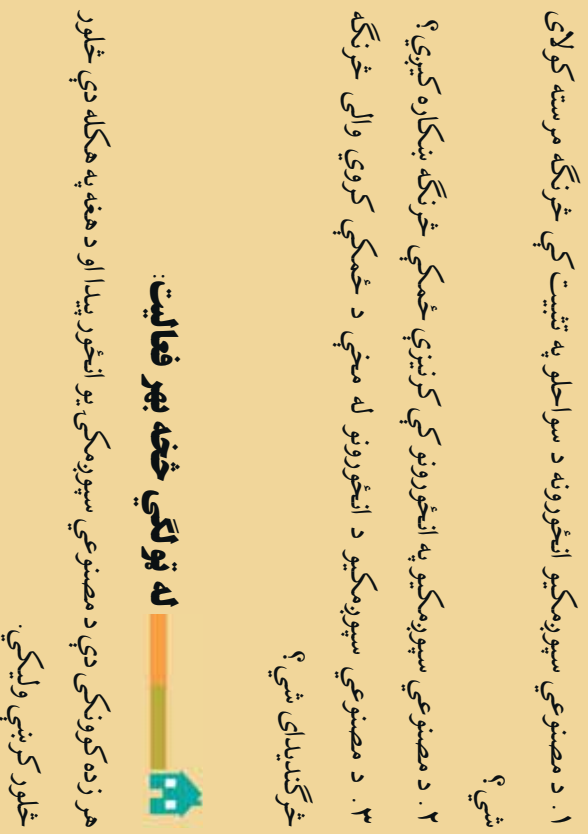 ۱. د مصنوعي سپوږمکیو انځورونه د سواحلو په تثبیت کې څرنګه مرسته کولای
شي؟
۲. د مصنوعي سپوږمکیو په انځورونو کې کرنیزې ځمکې څرنګه ښکاره کیږي؟
۳. د مصنوعي سپوږمکیو د انځورونو له مخې د ځمکې کروي والی څرنګه
څرګندیدای شي؟
له ټولګي څخه بهر فعالیت:
هر زده کوونکی دې د مصنوعي سپوږمکۍ یو انځور پیدا او د هغه په هکله دې څلور
څلور کرښې ولیکي.